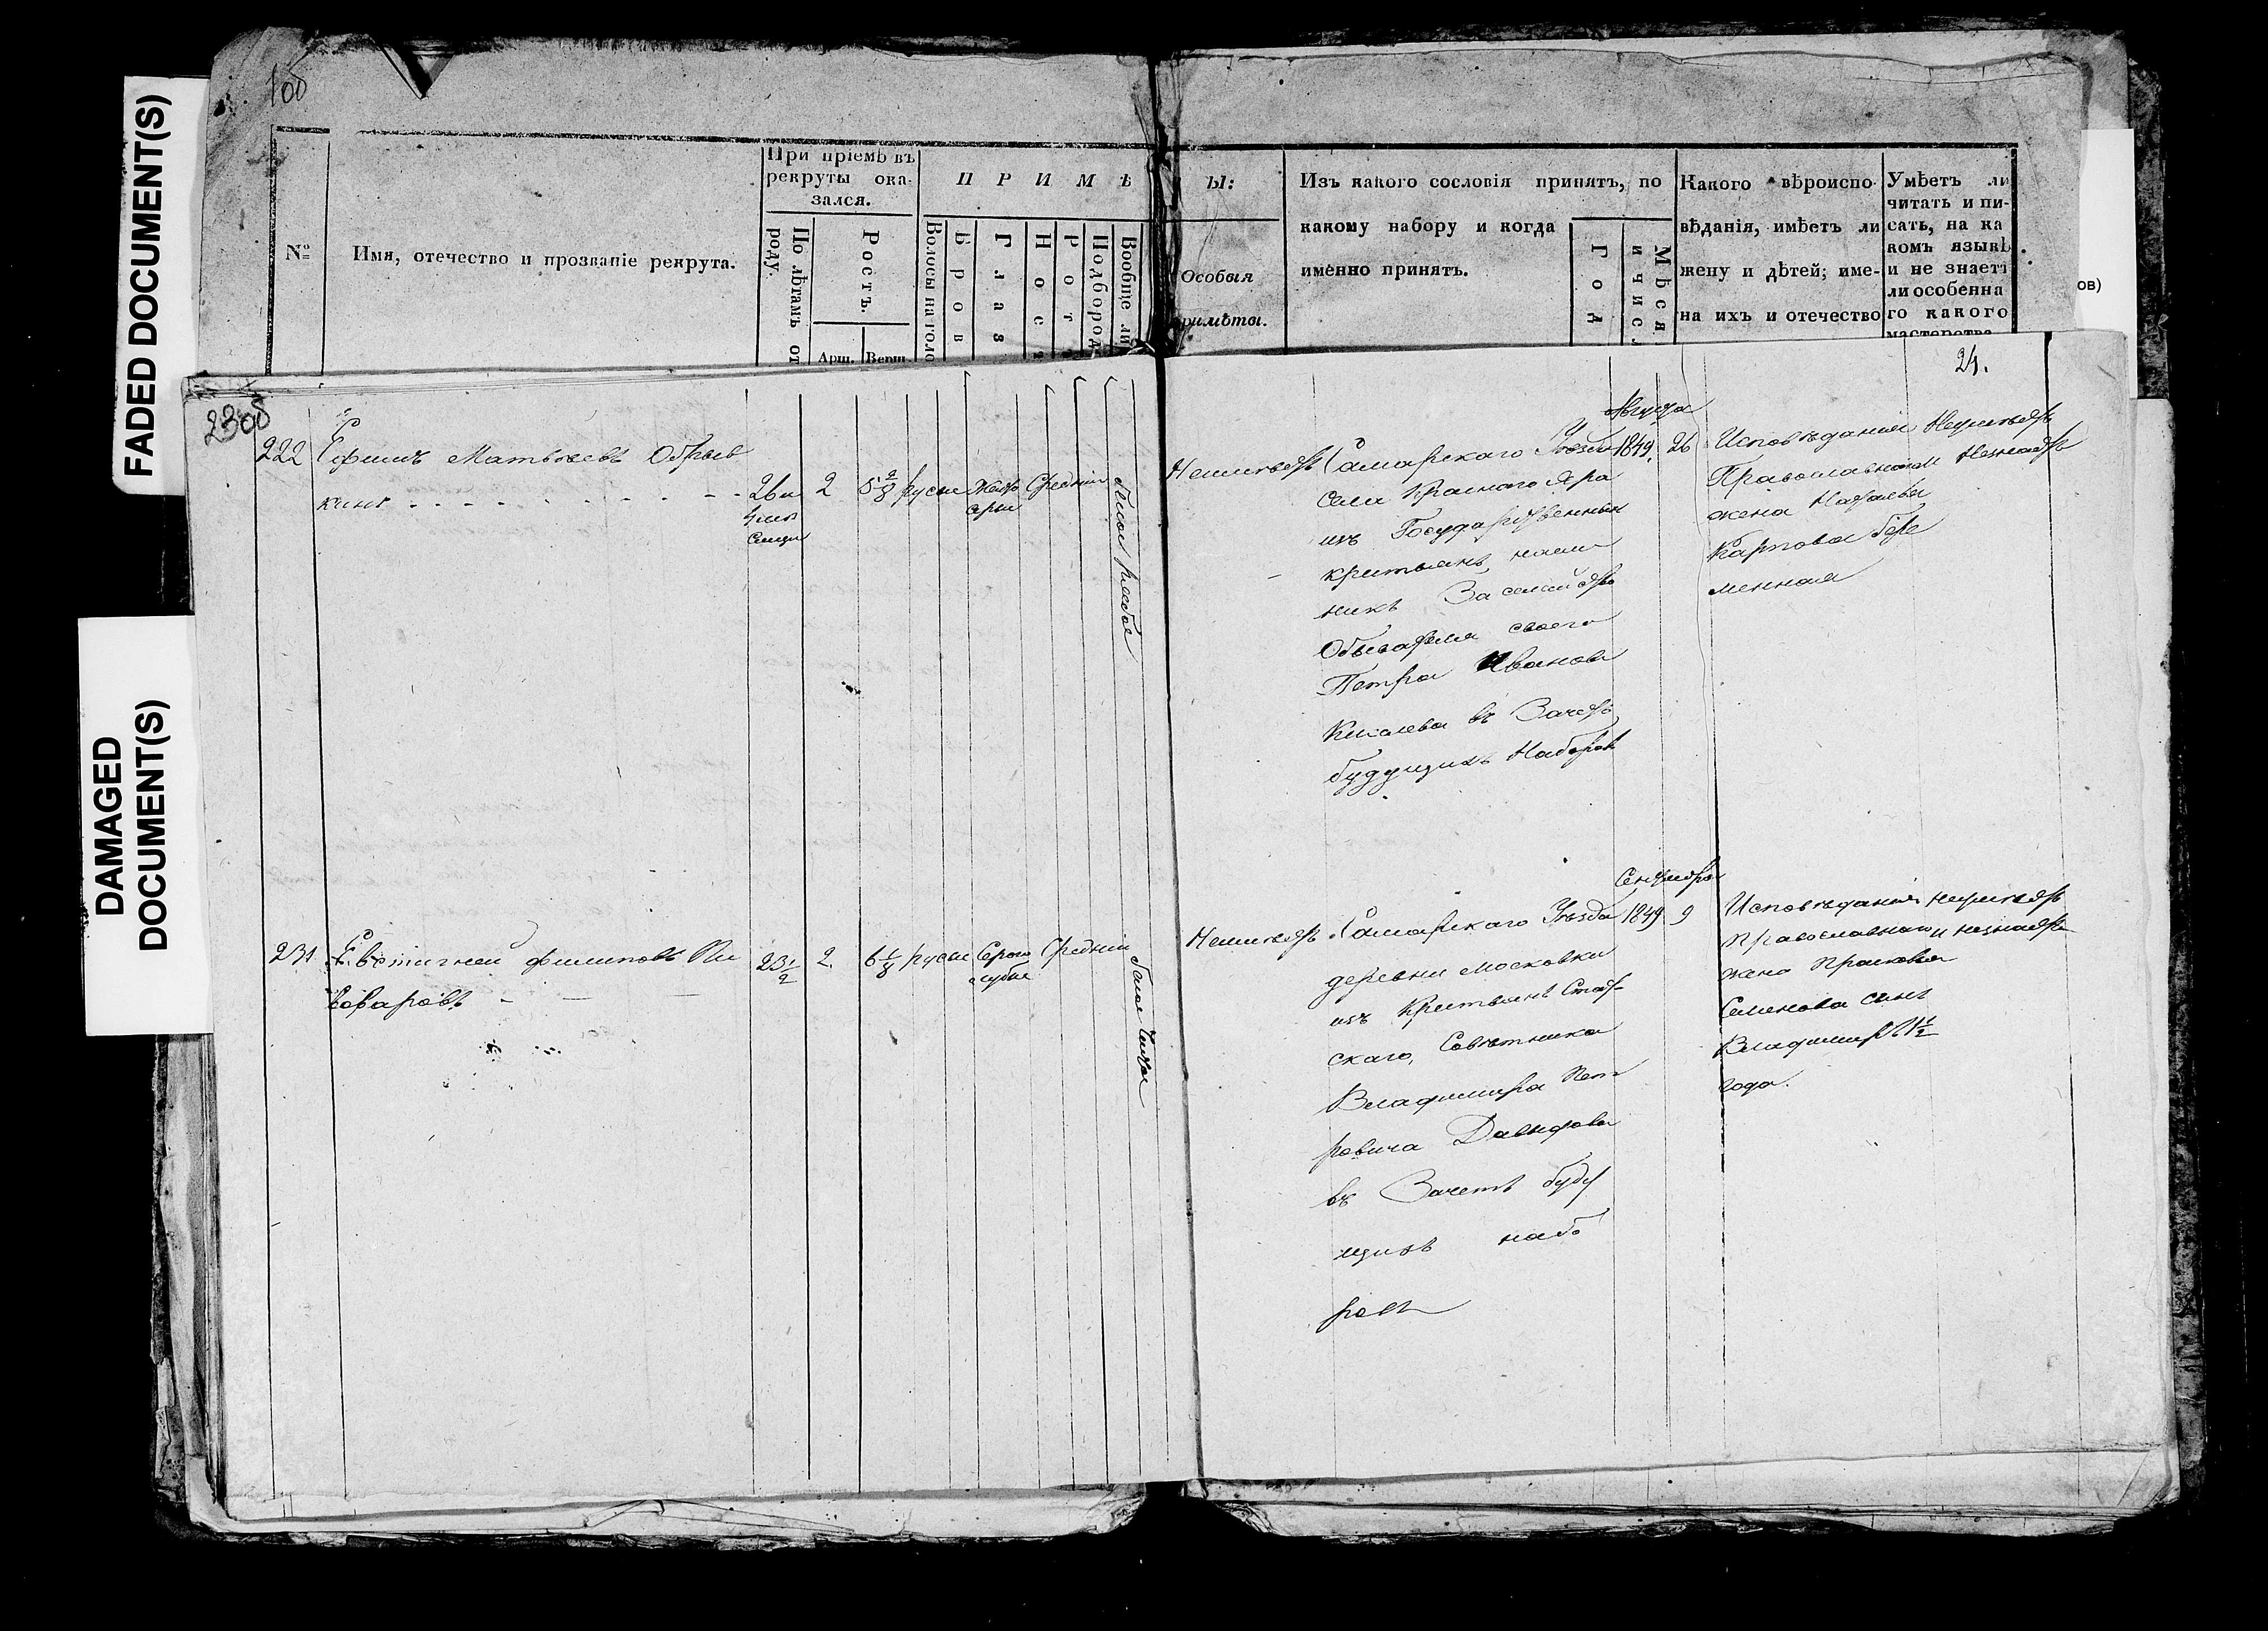 FADED DOCUMENT(S)
DAMAGED
DOCUMENT(S)
1об
№
Имя, отечество и прозваніе рекрута.
При пріемѣ въ
рекруты ока-
зался.
По лѣтамъ от
роду.
Ростъ.
Арш.
Верш.
ПРИМѢ
Волосы на голо
Бров
Глаз
Нос
Рот
Подбород
Вообще ли
Ы:
Особыя
римѣты.
Изъ какого сословія принятъ, по
какому набору и когда
именно принятъ.
Год
Мѣся
и чис.
Какого вѣроиспо-
вѣданія, имѣетъ ли
жену и дѣтей; име-
на ихъ и отечество
Умѣетъ ли
читать и пи-
сать, на ка
комъ языкѣ
и не знаетъ
ли особенна
го какого
мастерства
ов)
23об
24.
222
Ефимъ Матвѣевъ Обрыв
кинъ
26
2
5
русы
Средніи
Белое рябое
Неимѣетъ
Самарскаго Уѣзда
села Краснаго Яра
изъ Государственныхъ
крестьянъ, наем
никъ За семейство
Обывателя своего
Петра Иванова
Кикалева въ Зачетъ
будущихъ Наборовъ
Августа
1849. 26
Исповѣданія Неумѣетъ
Православнаго и Незнаетъ
жена Наталья
Карпова бере
менная
231
Евстигней Филиповъ Пи
воваровъ
23 1/2
2.
6 1/8
русы
Серого
лубые
Средніи
Белое Чистое
Неимѣетъ
Самарскаго Уѣзда
деревни Московки
изъ Крестьянъ Стат-
скаго, Совѣтника
Владимира Пет
ровича Давыдова
въ Зачетъ буду
щихъ набо
ровъ
Сентября
1849 9
Исповѣданія неумѣетъ
Православнаго и незнаетъ
жена Прасковья
Семенова сынъ
Владимиръ 1 1/2
года.